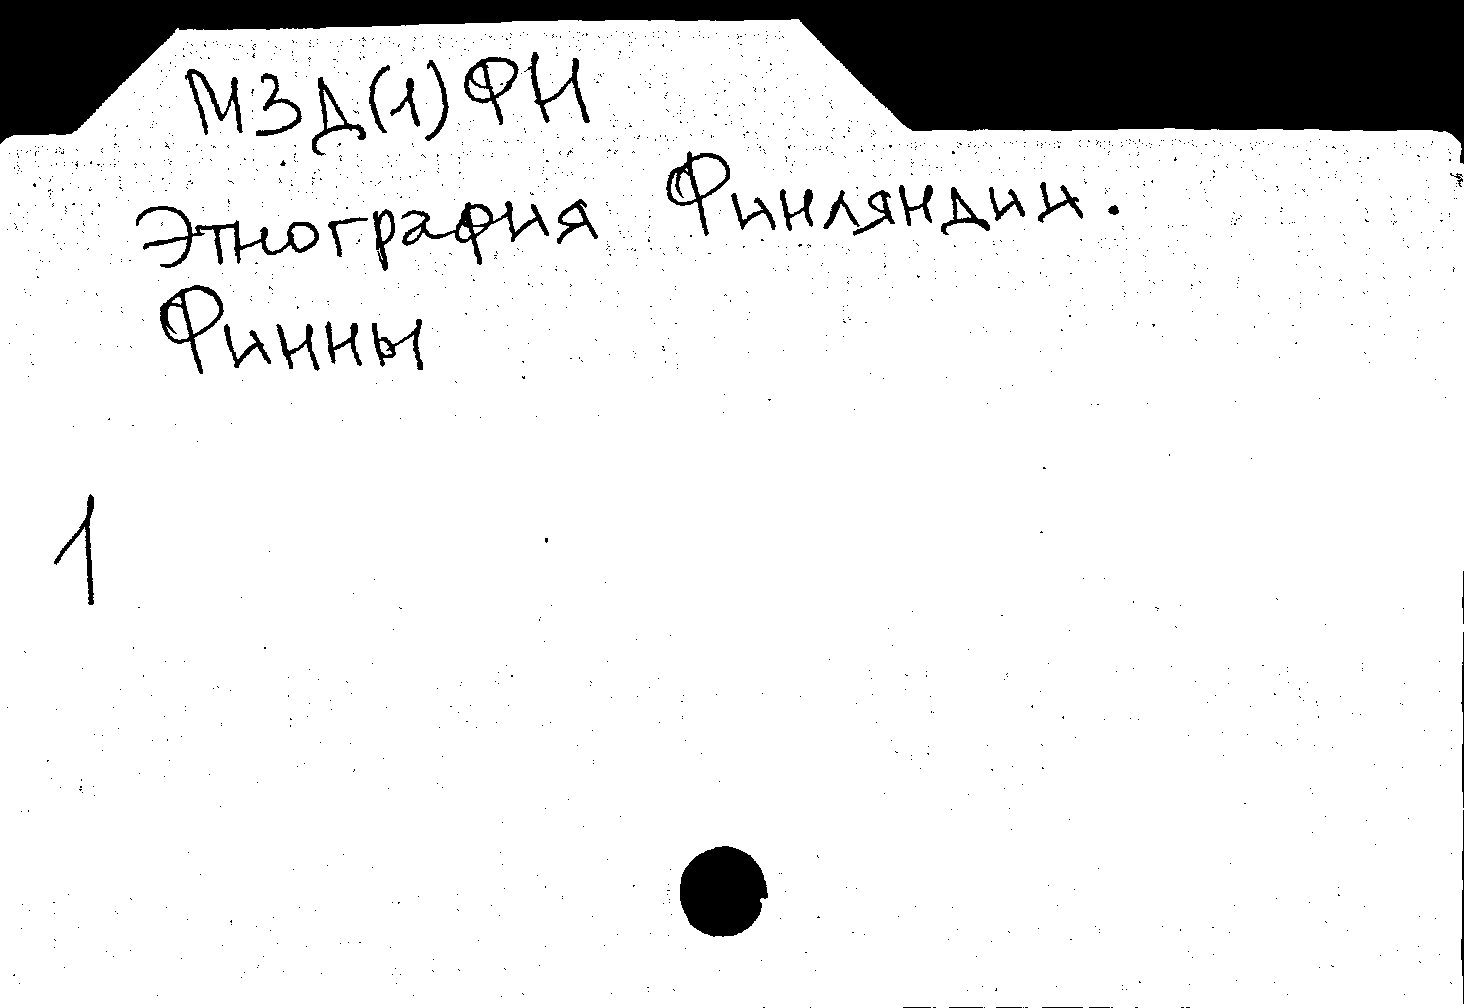 МЗД(1)ФН
Этнография Финляндии.
Финны
1